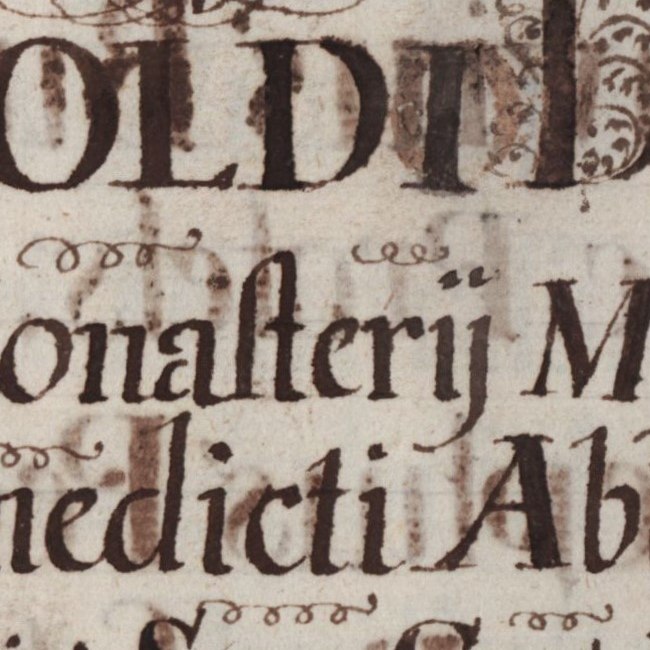 OLDI
onaſterij M
nedicti Ab